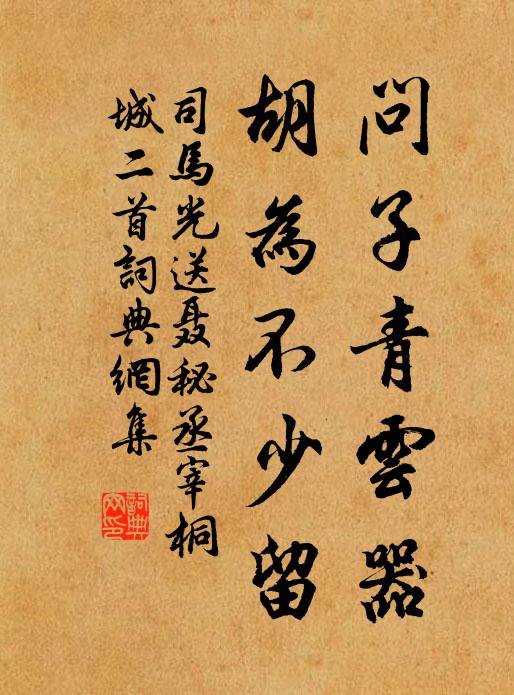 問子青雲器
胡為不少留
司馬光送聂秘丞宰桐
城二首詞典網集
詞典
网印